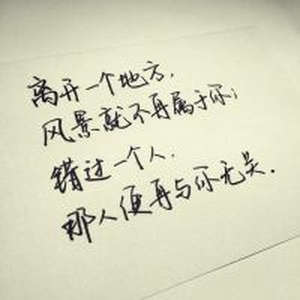 离开一个地方，
风景就不再属于你；
错过一个人，
那人便再与你无关．